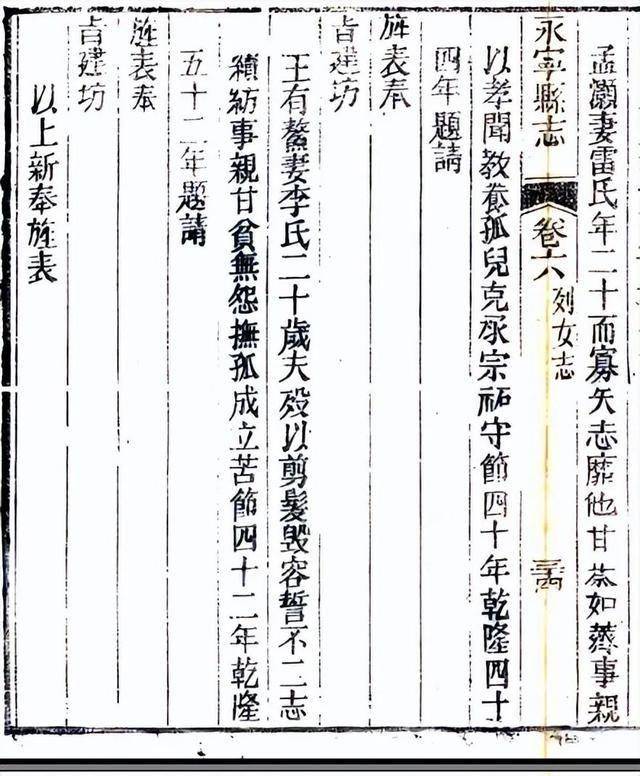 孟灝妻雷氏年二十而寡矢志靡他甘荼如薺事親
永寧縣志
卷六
列女志
三十四
以孝聞教養孤兒克承宗祏守節四十年乾隆四十
四年題請
旌表奉
旨建坊
王有鰲妻李氏二十歲夫歿以剪髮毀容誓不二志
績紡事親甘貧無怨撫孤成立苦節四十二年乾隆
五十二年題請
旌表奉
旨建坊
以上新奉旌表